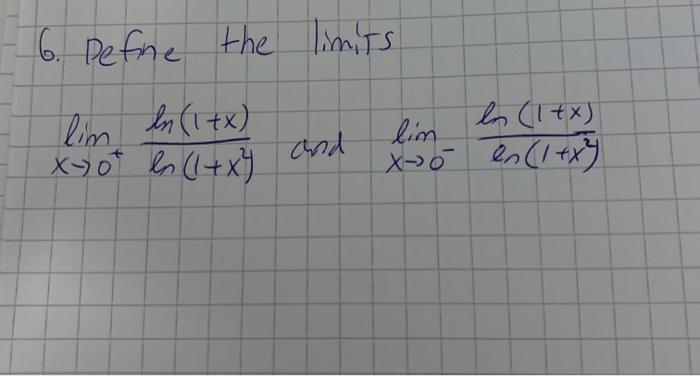 6. Define the limits
lim x→0⁺ ln(1+x) / ln(1+x²) and lim x→0⁻ ln(1+x) / ln(1+x²)